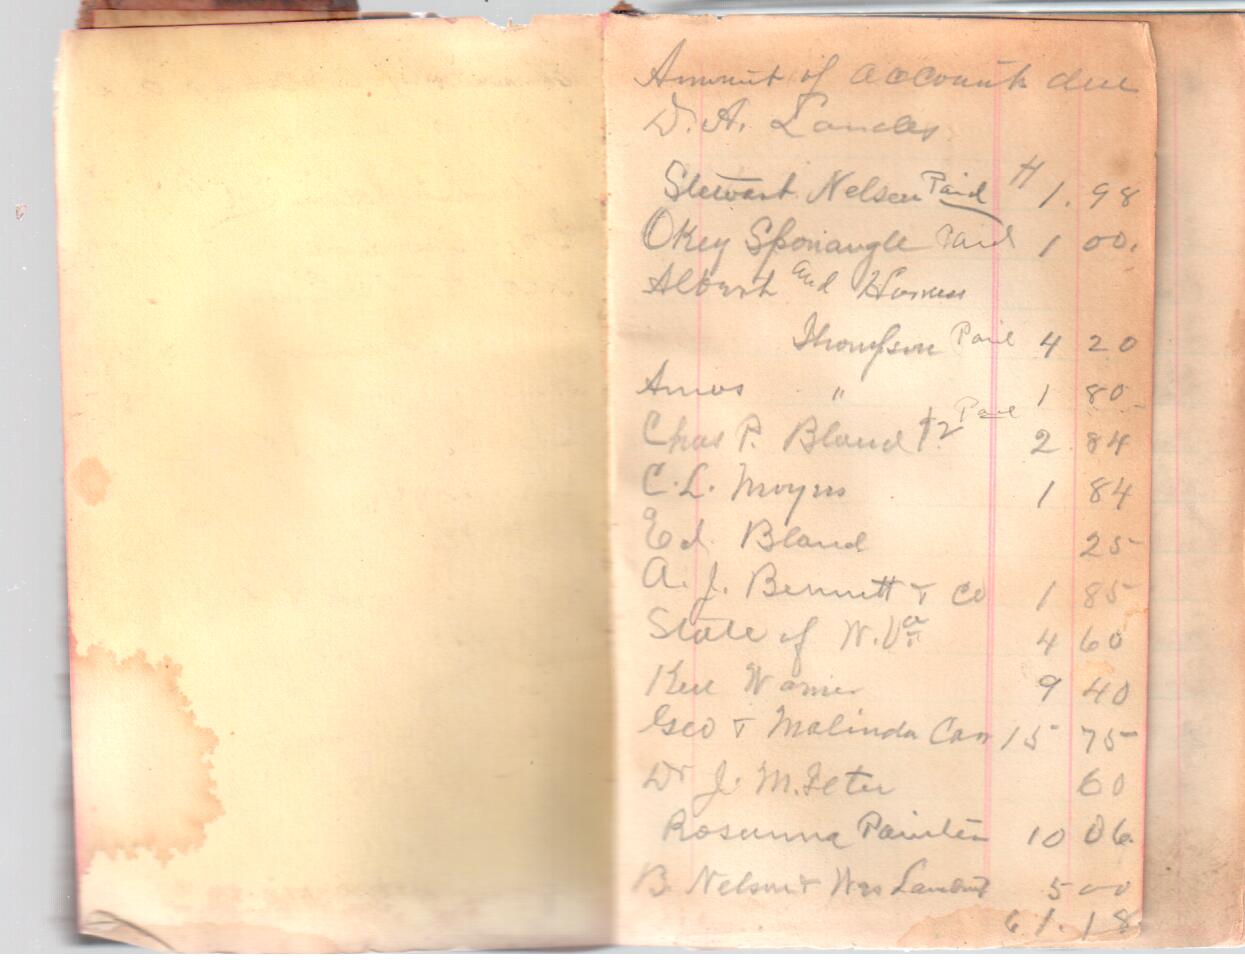 Amount of accounts due
D. A. Landes
Stewart Nelson Paid # 1.98
Okey Sponaugle Paid 1 00.
Albert and Homer
Thompson Paid 4 20
Amos " 1 80
Chas P. Bland Paid 2.84
C. L. Moyers 1 84
Ed. Bland 25
A. J. Bennett & Co 1 85
State of W. Va 4 60
Ken Warner 9 40
Geo & Malinda Carr 15 75
Dr J. M. 60
Rosanna Painter 10 06
B. Nelson & Wes Lambert 5 00
61.18